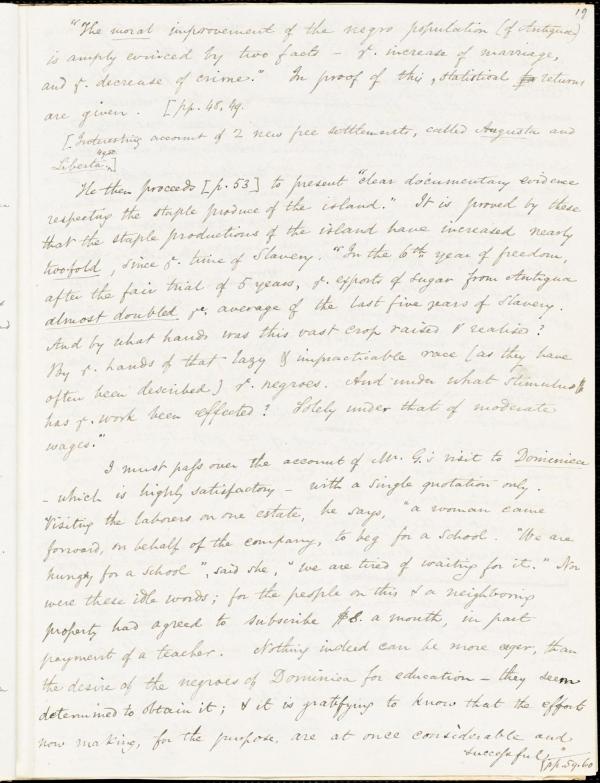 19
"The moral improvement of the negro population (of Antigua)
is amply evinced by two facts – ye. increase of marriage,
and ye. decrease of crime." In proof of this, statistical returns
are given. [pp. 48, 49.
[Interesting account of 2 new free settlements, called Augusta and
Liberta.]
He then proceeds [p. 53] to present "clear documentary evidence
respecting the staple produce of the island." It is proved by these
that the staple productions of the island have increased nearly
twofold, since ye. time of Slavery. "In the 6th year of freedom,
after the fair trial of 5 years, ye. exports of sugar from Antigua
almost doubled ye. average of the last five years of Slavery.
And by what hands was this vast crop raised & realised?
By ye. hands of that lazy & impracticable race (as they have
often been described) ye. negroes. And under what stimulus
has ye. work been effected? Solely under that of moderate
wages."
I must pass over the account of Mr. G.'s visit to Dominica
– which is highly satisfactory – with a single quotation only.
Visiting the laborers on one estate, he says, "a woman came
forward, on behalf of the company, to beg for a school. "We are
hungry for a school", said she, "we are tired of waiting for it." Nor
were these idle words; for the people on this & a neighboring
property had agreed to subscribe $8. a month, in part
payment of a teacher. Nothing indeed can be more eager, than
the desire of the negroes of Dominica for education – they seem
determined to obtain it; & it is gratifying to know that the efforts
now making, for the purpose, are at once considerable and
successful." [pp. 59. 60